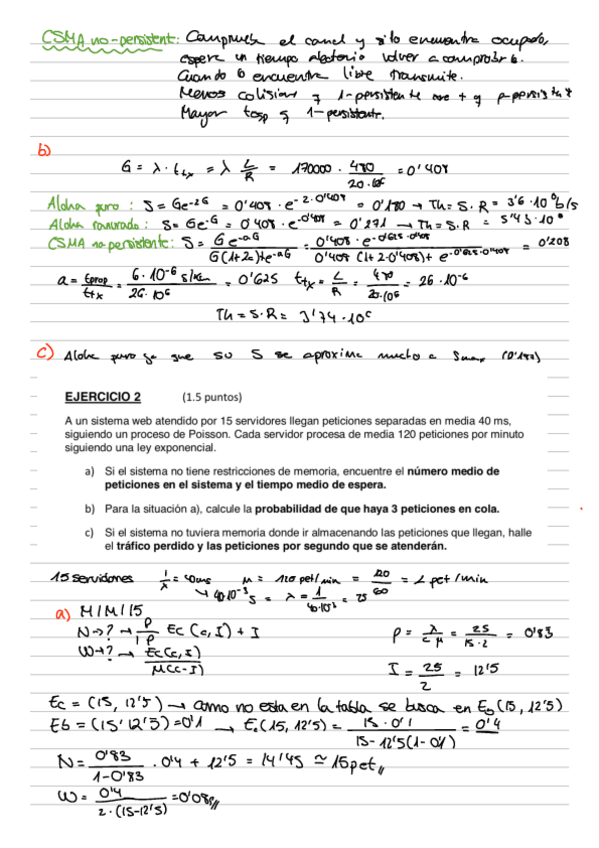 CSMA no-persistent: Comprueba el canal y si lo encuentra ocupado,
espera un tiempo aleatorio volver a comprobarlo.
Cuando lo encuentra libre transmite.
Menos colisiones q 1-persistente y p-persist
Mayor q 1-persistente.
b)
G = λ · ttx = λ L/R = 170000 · 480/20·10⁶ = 0'408
Aloha puro: S = Ge^-2G = 0'408 · e^-2·0'408 = 0'180 → Th = S·R = 3'6·10⁶ b/s
Aloha ranurado: S = Ge^-G = 0'408 · e^-0'408 = 0'271 → Th = S·R = 5'43·10⁶
CSMA no-persistente: S = Ge^-aG / G(1+2a)+e^-aG = 0'408 · e^-0'625·0'408 / 0'408 (1+2·0'408)+e^-0'625·0'408 = 0'208
a = tprop/ttx = 6·10⁻⁶ s/km / 26·10⁻⁶ = 0'625 ttx = L/R = 480/20·10⁶ = 26·10⁻⁶
Th = S·R = 3'74·10⁶
c) Aloha puro ya que su S se aproxima mucho a Smax
EJERCICIO 2 (1.5 puntos)
A un sistema web atendido por 15 servidores llegan peticiones separadas en media 40 ms,
siguiendo un proceso de Poisson. Cada servidor procesa de media 120 peticiones por minuto
siguiendo una ley exponencial.
a) Si el sistema no tiene restricciones de memoria, encuentre el número medio de
peticiones en el sistema y el tiempo medio de espera.
b) Para la situación a), calcule la probabilidad de que haya 3 peticiones en cola.
c) Si el sistema no tuviera memoria donde ir almacenando las peticiones que llegan, halle
el tráfico perdido y las peticiones por segundo que se atenderán.
15 servidores 1/λ = 40ms μ = 120 pet/min = 120/60 = 2 pet/min
↳ 40·10⁻³ s = λ = 1/40·10⁻³ = 25
a) M/M/15
N→? → P/1-P Ec (c,I) + I P = λ/cμ = 25/15·2 = 0'83
W→? → Ec(c,I)/μ(c-I) I = 25/2 = 12'5
Ec = (15, 12'5) → como no esta en la tabla se busca en Eb (15, 12'5)
Eb = (15, 12'5) = 0'1 → Ec(15, 12'5) = 15 · 0'1 / 15-12'5(1-0'1) = 0'4
N = 0'83/1-0'83 · 0'4 + 12'5 = 14'45 ≃ 15pet//
W = 0'4 / 2·(15-12'5) = 0'08s//